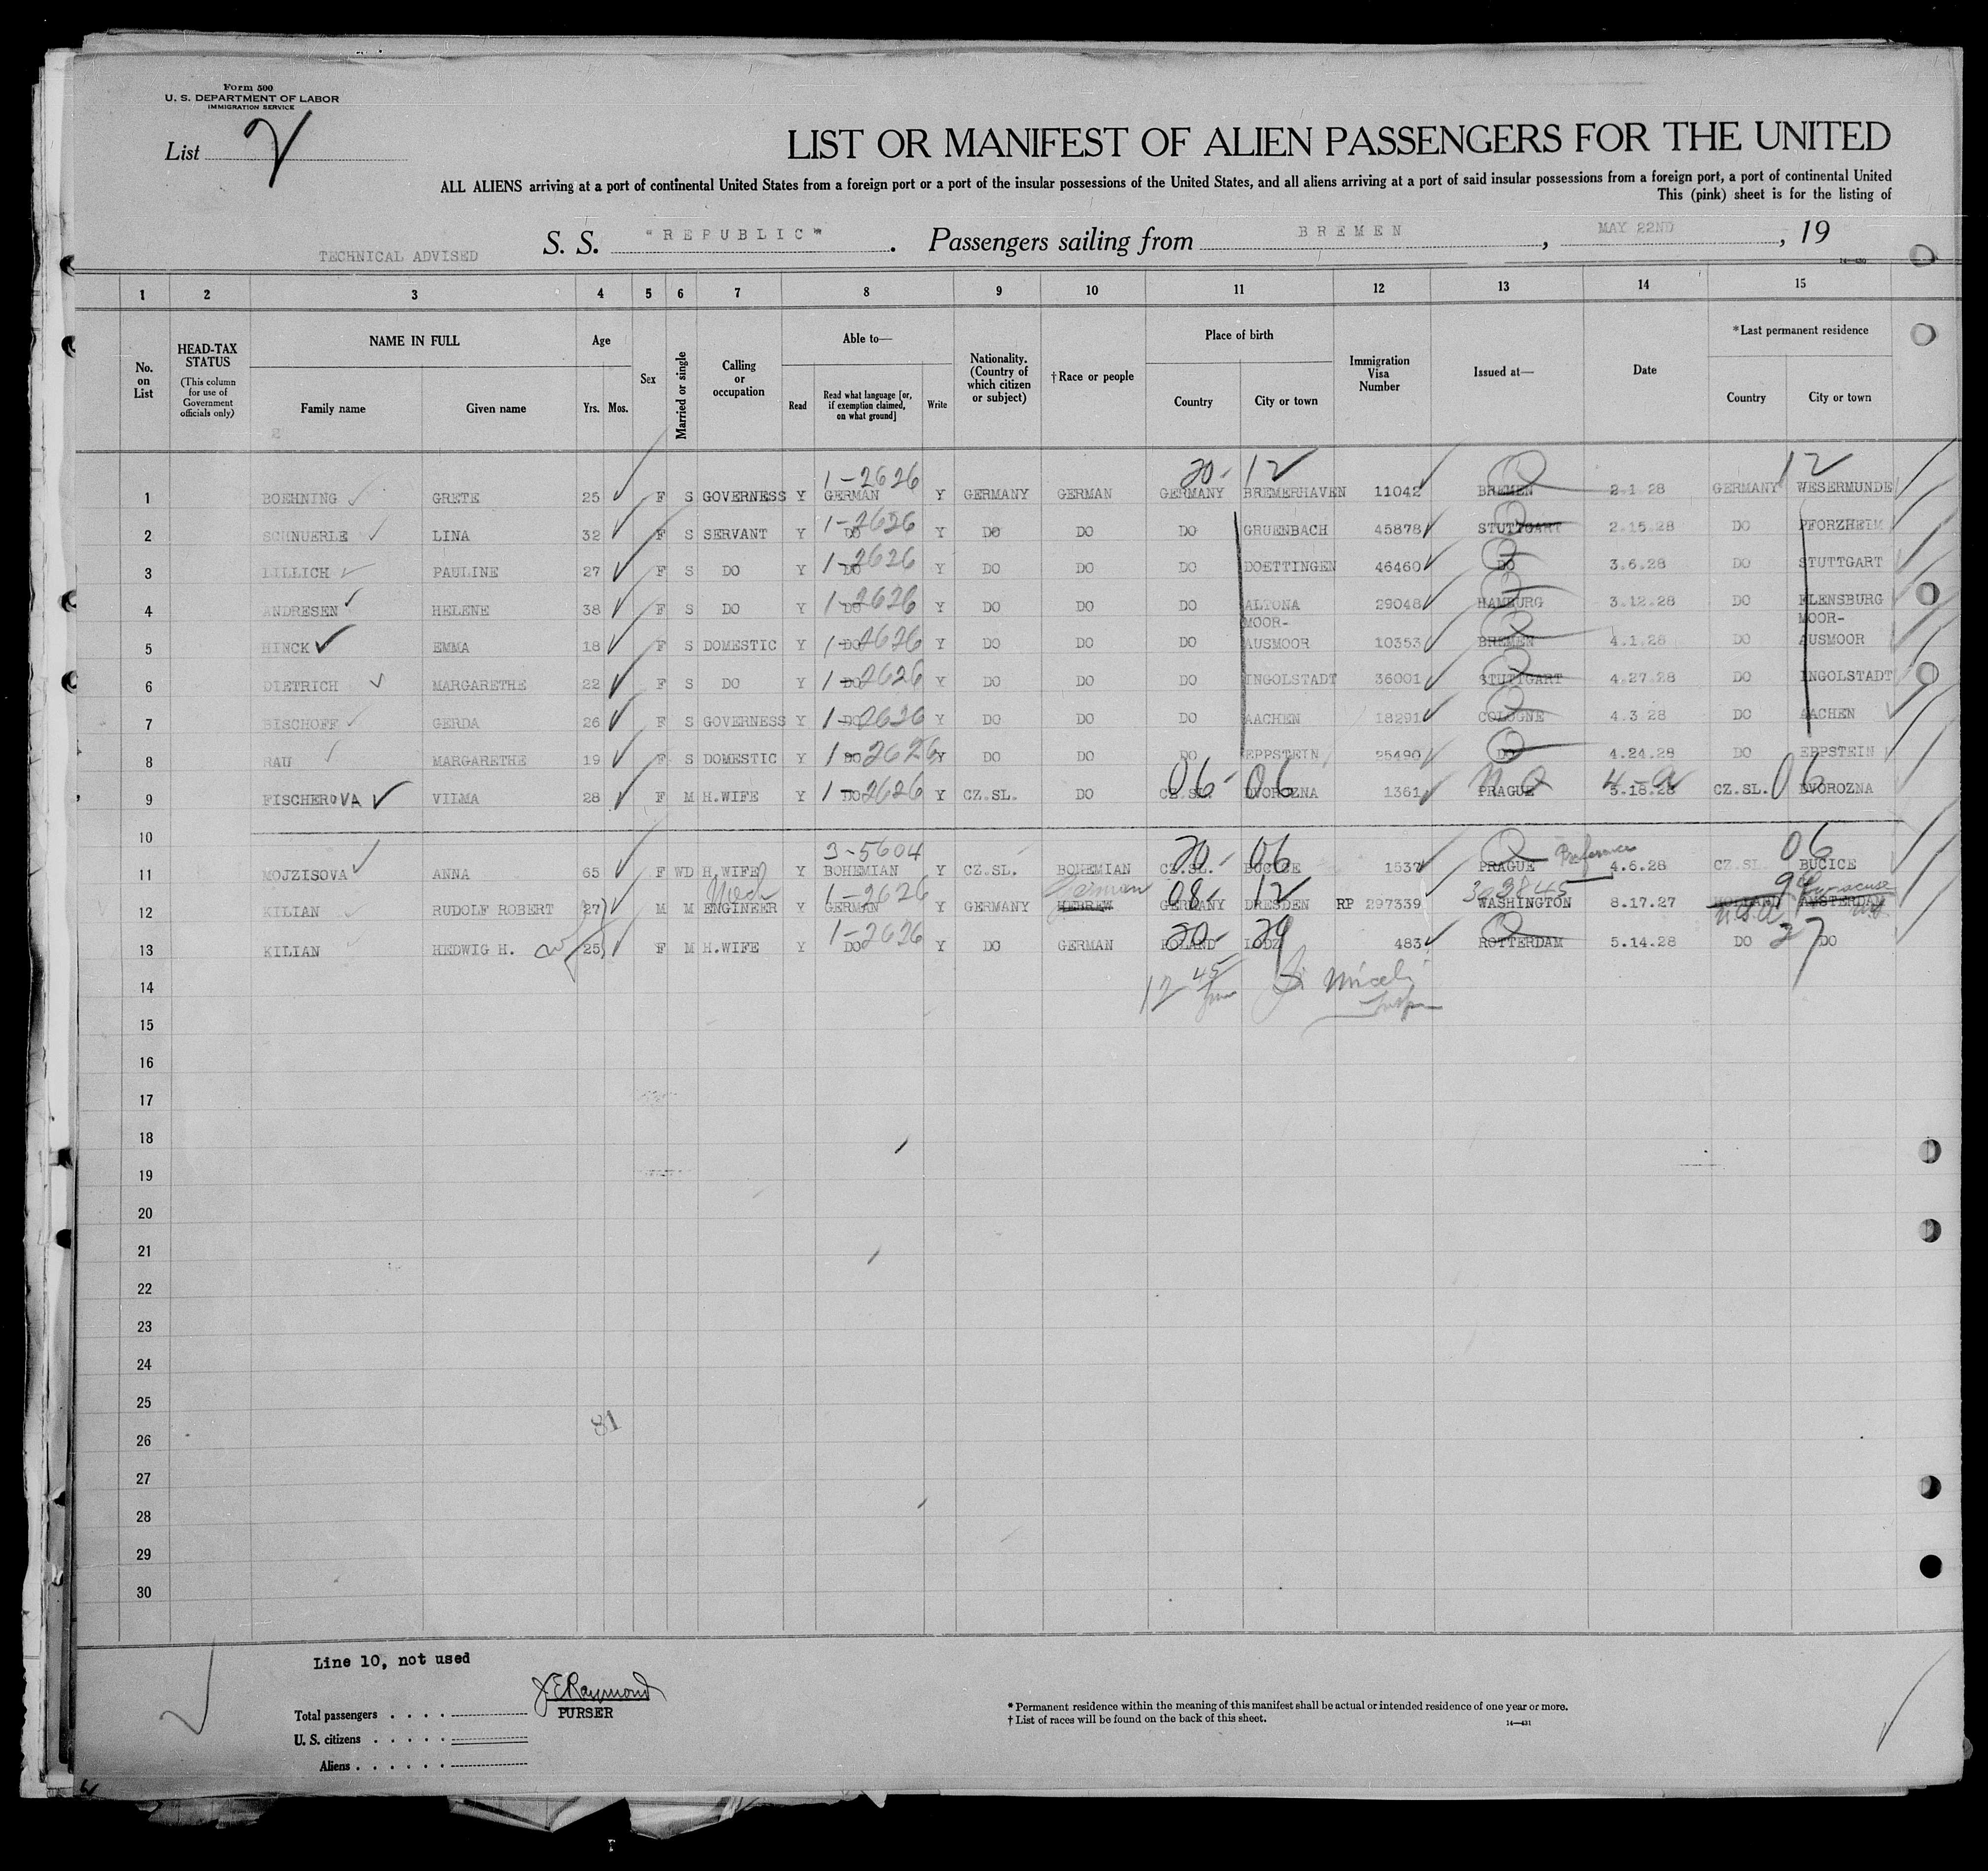 Form 500
U. S. DEPARTMENT OF LABOR
IMMIGRATION SERVICE
List 2
LIST OR MANIFEST OF ALIEN PASSENGERS FOR THE UNITED
ALL ALIENS arriving at a port of continental United States from a foreign port or a port of the insular possessions of the United States, and all aliens arriving at a port of said insular possessions from a foreign port, a port of continental United
This (pink) sheet is for the listing of
TECHNICAL ADVISED S. S. "REPUBLIC" . Passengers sailing from BREMEN , MAY 22ND , 19
14—430
1 2 3 4 5 6 7 8 9 10 11 12 13 14 15
No. on List HEAD-TAX STATUS (This column for use of Government officials only) NAME IN FULL Family name Given name Age Yrs. Mos. Sex Married or single Calling or occupation Able to— Read Read what language [or, if exemption claimed, on what ground] Write Nationality. (Country of which citizen or subject) †Race or people Place of birth Country City or town Immigration Visa Number Issued at— Date *Last permanent residence Country City or town
1-2626 20- 12 12
1 BOEHNING GRETE 25 F S GOVERNESS Y GERMAN Y GERMANY GERMAN GERMANY BREMERHAVEN 11042 BREMEN 2.1.28 GERMANY WESERMUNDE
2 SCHNUERLE LINA 32 F S SERVANT Y DO 1-2626 Y DO DO DO GRUENBACH 45878 STUTTGART 2.15.28 DO PFORZHEIM
3 LILLICH PAULINE 27 F S DO Y DO 1-2626 Y DO DO DO DOETTINGEN 46460 DO 3.6.28 DO STUTTGART
4 ANDRESEN HELENE 38 F S DO Y DO 1-2626 Y DO DO DO ALTONA 29048 HAMBURG 3.12.28 DO FLENSBURG
MOOR- MOOR-
5 HINCK EMMA 18 F S DOMESTIC Y DO 1-2626 Y DO DO DO AUSMOOR 10353 BREMEN 4.1.28 DO AUSMOOR
6 DIETRICH MARGARETHE 22 F S DO Y DO 1-2626 Y DO DO DO INGOLSTADT 36001 STUTTGART 4.27.28 DO INGOLSTADT
7 BISCHOFF GERDA 26 F S GOVERNESS Y DO 1-2626 Y DO DO DO AACHEN 18291 COLOGNE 4.3.28 DO AACHEN
8 RAU MARGARETHE 19 F S DOMESTIC Y DO 1-2626 Y DO DO DO EPPSTEIN 25490 DO 4.24.28 DO EPPSTEIN
06- 06 06
9 FISCHEROVA VILMA 28 F M H.WIFE Y DO 1-2626 Y CZ.SL. DO CZ.SL. DVOROZNA 1361 PRAGUE 3.18.28 CZ.SL. DVOROZNA
10
3-5604 20- 06 Preference 06
11 MOJZISOVA ANNA 65 F WD H.WIFE Y BOHEMIAN Y CZ.SL. BOHEMIAN CZ.SL. BUCICE 1537 PRAGUE 4.6.28 CZ.SL. BUCICE
1-2626 German 08- 12 Syracuse
12 KILIAN RUDOLF ROBERT 27 M M ENGINEER Y GERMAN Y GERMANY HEBREW GERMANY DRESDEN RP 297339 WASHINGTON 8.17.27 HOLLAND AMSTERDAM
U.S.A.
1-2626 20- 29 37
13 KILIAN HEDWIG H. 25 F M H.WIFE Y DO Y DO GERMAN POLAND LODZ 483 ROTTERDAM 5.14.28 DO DO
14 12 45
15
16
17
18
19
20
21
22
23
24
25
81
26
27
28
29
30
Line 10, not used
J E Raymond
PURSER
Total passengers
U. S. citizens
Aliens
* Permanent residence within the meaning of this manifest shall be actual or intended residence of one year or more.
† List of races will be found on the back of this sheet.
14—431